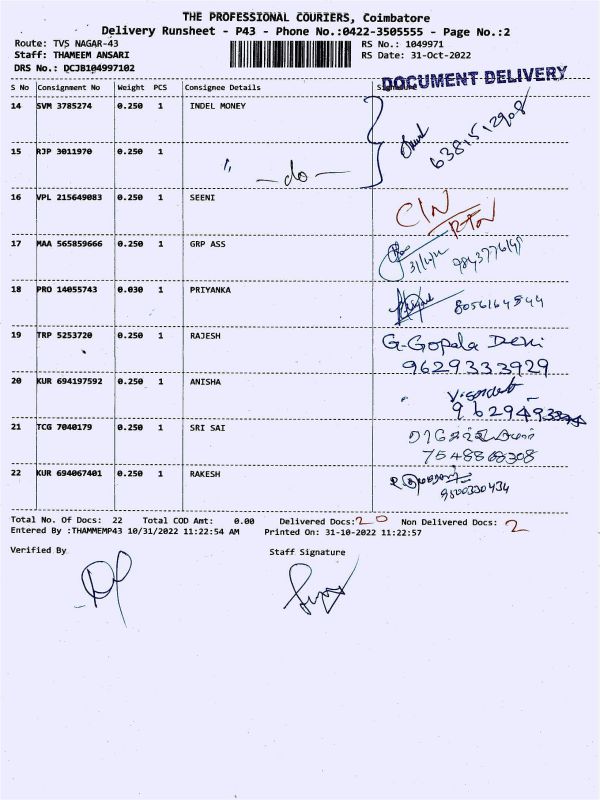 THE PROFESSIONAL COURIERS, Coimbatore
Delivery Runsheet - P43 - Phone No.:0422-3505555 - Page No.:2
Route: TVS NAGAR-43 RS No.: 1049971
Staff: THAMEEM ANSARI RS Date: 31-Oct-2022
DRS No.: DCJB104997102
DOCUMENT DELIVERY
S No Consignment No Weight PCS Consignee Details
14 SVM 3785274 0.250 1 INDEL MONEY
6381512908
15 RJP 3011970 0.250 1
— do —
16 VPL 215649083 0.250 1 SEENI
17 MAA 565859666 0.250 1 GRP ASS
18 PRO 14055743 0.030 1 PRIYANKA
19 TRP 5253720 0.250 1 RAJESH G-Gopala
9629333929
20 KUR 694197592 0.250 1 ANISHA
21 TCG 7040179 0.250 1 SRI SAI
22 KUR 694067401 0.250 1 RAKESH
9500330434
Total No. Of Docs: 22 Total COD Amt: 0.00 Delivered Docs: 20 Non Delivered Docs: 2
Entered By :THAMMEMP43 10/31/2022 11:22:54 AM Printed On: 31-10-2022 11:22:57
Verified By Staff Signature